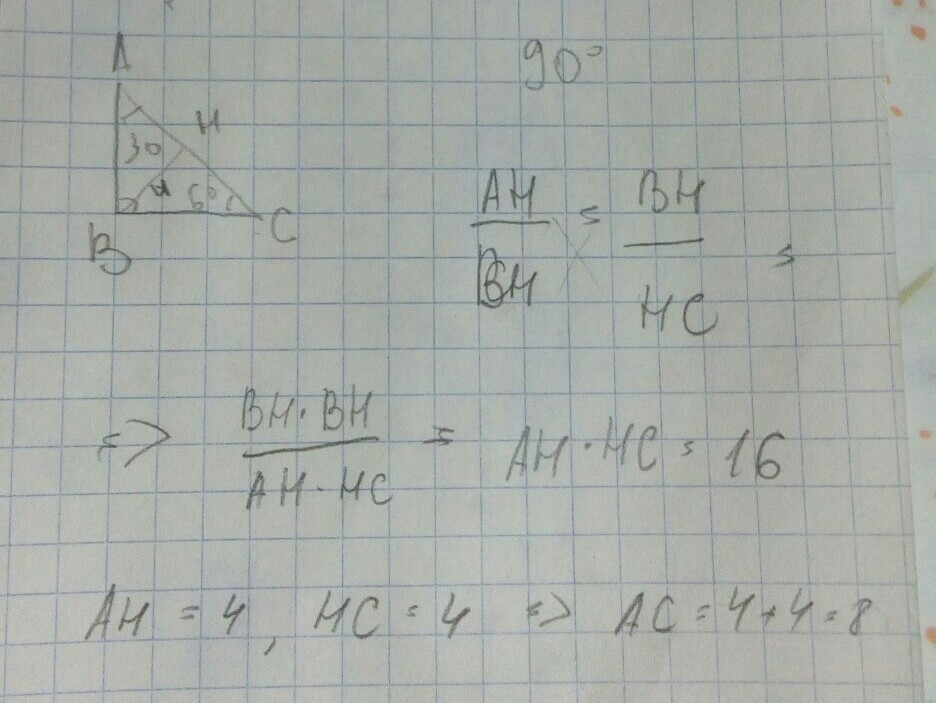 A
90°
H
30
4
60
B
C
AH/BH = BH/HC =
=> BH·BH/AH·HC = AH·HC = 16
AH = 4, HC = 4 => AC = 4+4=8